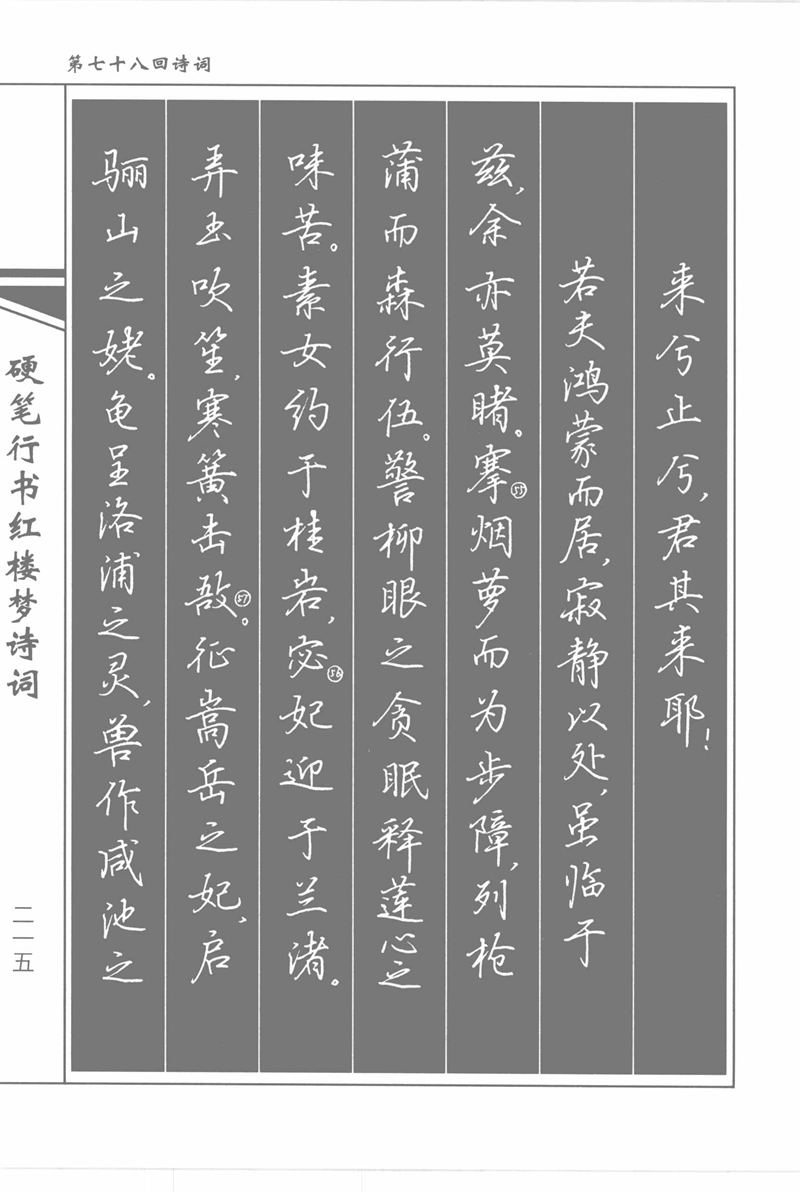 第七十八回诗词
来兮止兮，君其来耶！
若夫鸿蒙而居，寂静以处，虽临于
兹，余亦莫睹。搴㊺烟萝而为步障，列枪
蒲而森行伍。警柳眼之贪眠释莲心之
味苦。素女约于桂岩，宓㊻妃迎于兰渚。
弄玉吹笙，寒簧击敔㊼。征嵩岳之妃，启
骊山之姥。龟呈洛浦之灵，兽作咸池之
硬笔行书红楼梦诗词
二一五